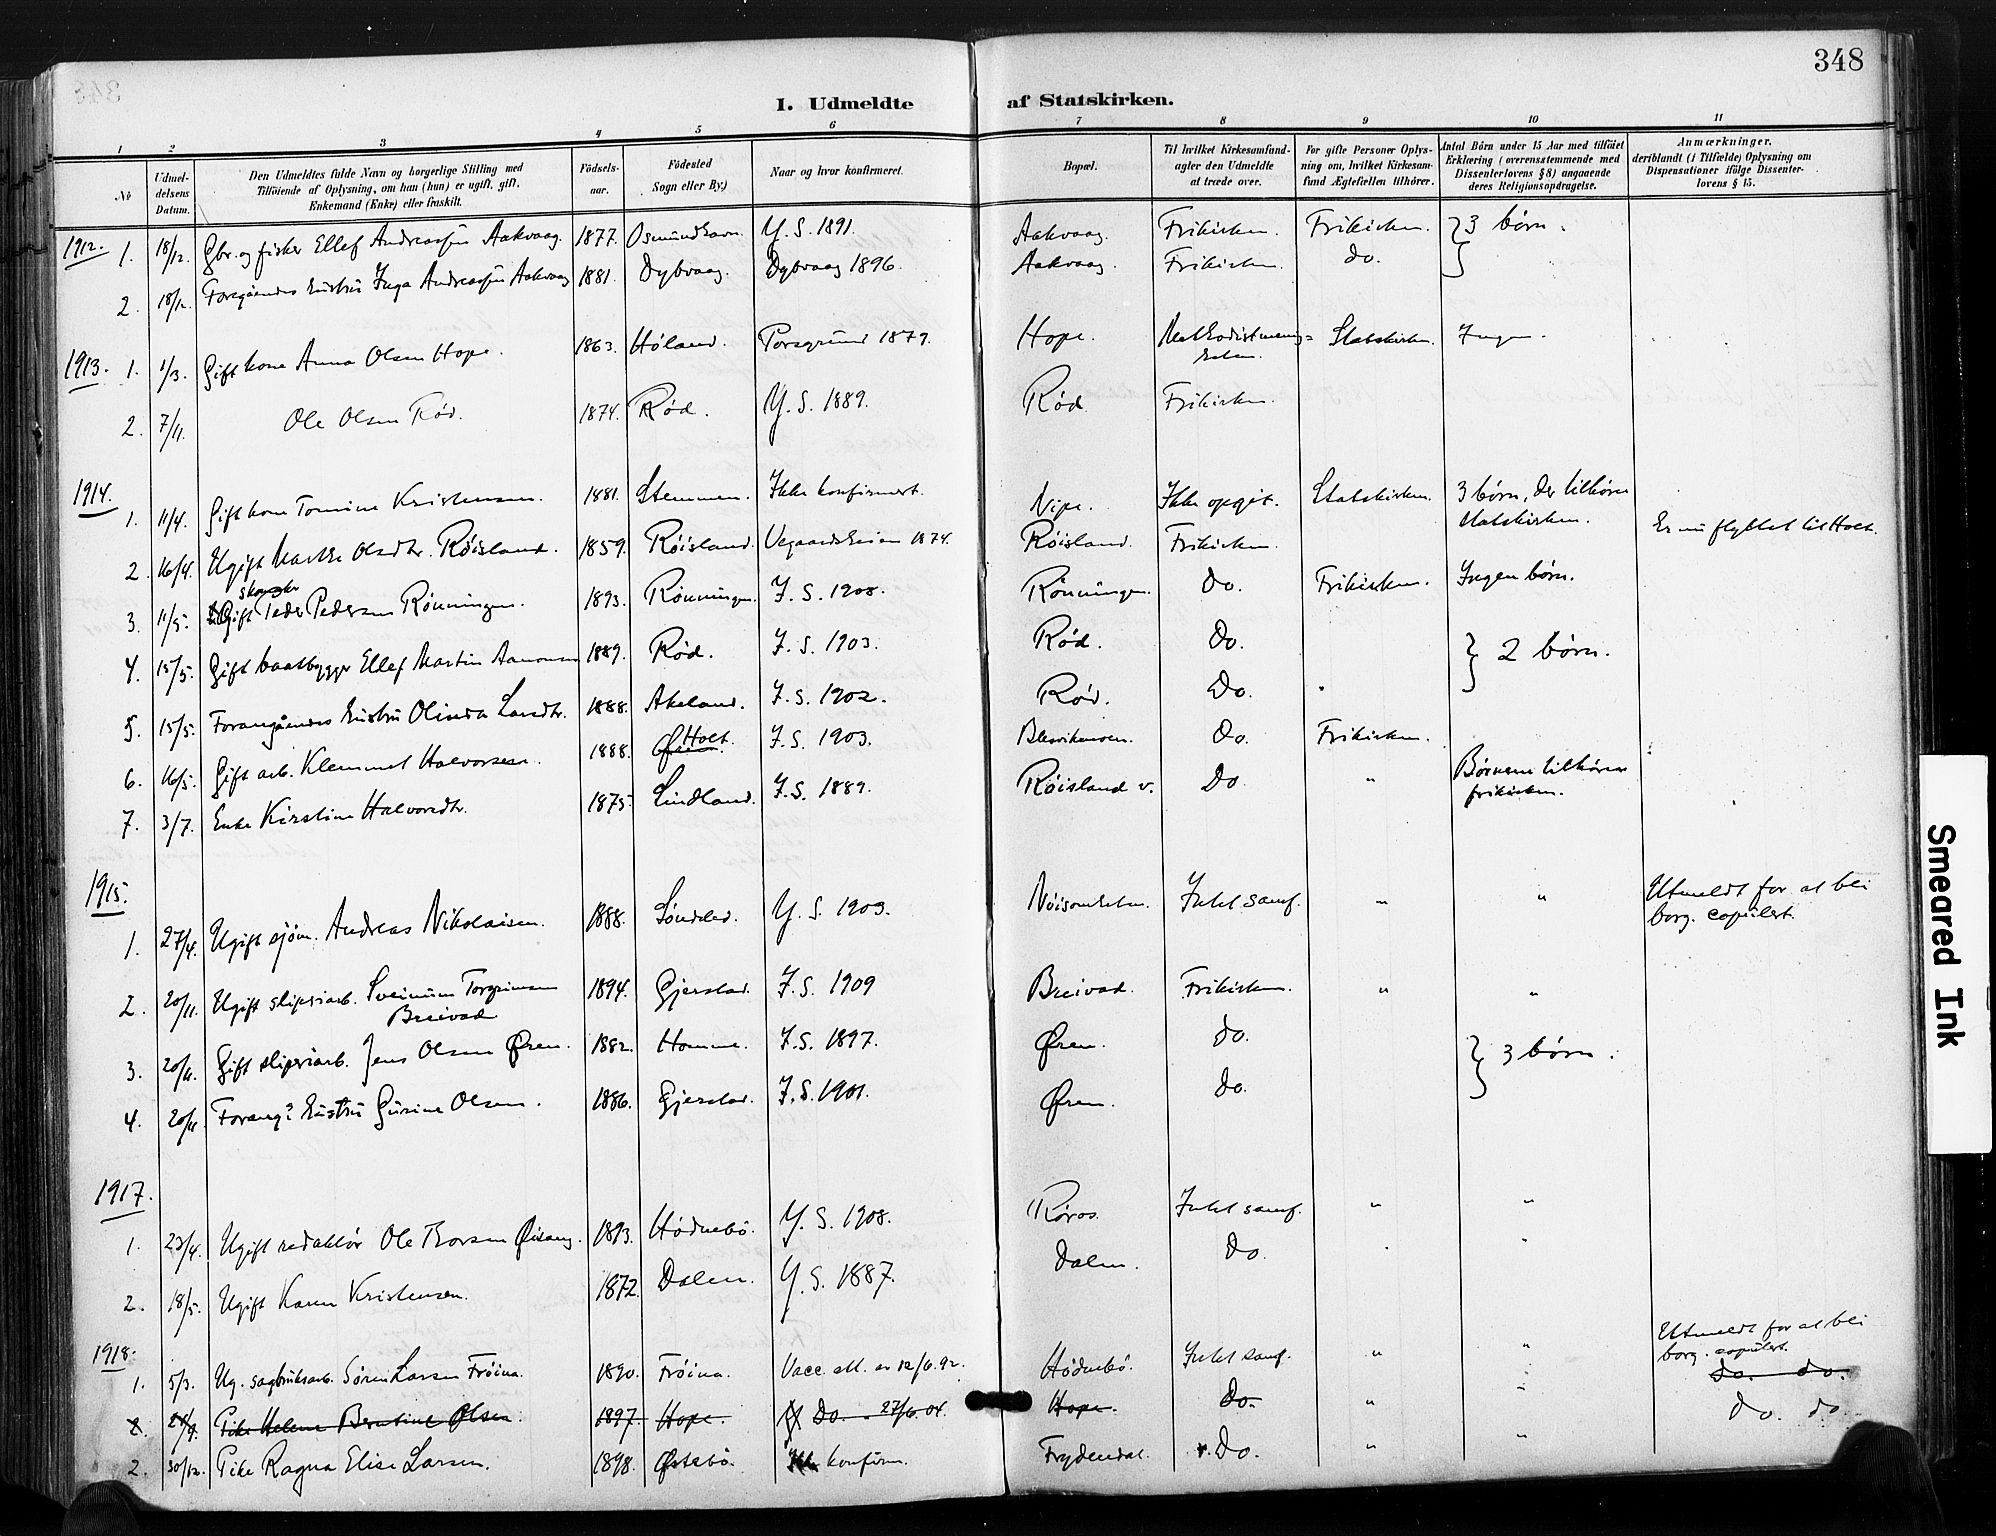 348
I. Udmeldte af Statskirken.
1 2 3 4 5 6 7 8 9 10 11
No
Udmel-
delsens
Datum.
Den Udmeldtes fulde Navn og borgerlige Stilling med
Tilføiende af Oplysning, om han (hun) er ugift, gift,
Enkemand (Enke) eller fraskilt.
Fødsels-
aar.
Fødested
Sogn eller By.)
Naar og hvor konfirmeret.
Bopæl.
Til hvilket Kirkesamfund-
agter den Udmeldte
at træde over.
For gifte Personer Oplys-
ning om, hvilket Kirkesam-
fund Ægtefællen tilhører.
Antal Børn under 15 Aar med tilføiet
Erklæring (overensstemmende med
Dissenterlovens § 8) angaaende
deres Religionsopdragelse.
Anmærkninger,
deriblandt (i Tilfælde) Oplysning om
Dispensationer ifølge Dissenter-
lovens § 15.
1912. 1. 18/12. Gbr. og fisker Ellef Andreassen Aakvaag. 1877. Osmundhavn. Y. S. 1891. Aakvaag. Frikirken. Frikirken. } 3 børn.
2. 18/12. Foregåendes hustru Inga Andreassen Aakvaag 1881. Dybvaag. Dybvaag 1896. Aakvaag. Frikirken. do.
1913. 1. 1/3. Gift kone Anna Olsen Hope. 1863. Høland. Porsgrund 1879. Hope. Methodistmenig=
heden. Statskirken. Ingen.
2. 7/11. Ole Olsen Rød. 1874. Rød. Y. S. 1889. Rød Frikirken.
1914. 1. 11/4. Gift kone Tomine Kristensen. 1881. Stemmen. Ikke konfirmert. Nipe. Ikke opgit. Statskirken. 3 børn, der tilhører
statskirken.
2. 16/4. Ugift Marthe Olsdtr. Røisland. 1859. Røisland. Vegaardsheien 1874. Røisland. Frikirken. Er nu flyttet til Holt.
3. 11/5. Gift skomaker Peder Pedersen Rønningen. 1893. Rønningen. I. S. 1908. Rønningen. Do. Frikirken. Ingen børn.
4. 15/5. Gift baatbygger Ellef Martin Aanonsen 1889. Rød. I. S. 1903. Rød. Do. } 2 børn.
5. 15/5. Forangåendes hustru Olinda Larsdtr. 1888. Akeland. I. S. 1902. Rød. Do.
6. 16/5. Gift arb. Klemmet Halvorsen. 1888. Holt. I. S. 1903. Do. Frikirken.
7. 3/7. Enke Kirstine Halvorsdtr. 1875. Lindland. I. S. 1889. Røisland v. Do " Børnene tilhører
frikirken.
1915. 1. 27/4. Ugift sjøm. Andreas Nikolaisen. 1888. Søndeled. Y. S. 1903. Nøisomheten. Intet samf. " " Utmeldt for at bli
borg. copulert.
2. 20/11. Ugift sliperiarb. Sveinum Torgrimsen
Breivad 1894. Gjerstad. I. S. 1909 Breivad. Frikirken. " "
3. 20/11. Gift sliperiarb. Jens Olsen Øren. 1882. Homme. I. S. 1897. Øren. do. } 3 børn.
4. 20/11 Forang.s hustru Gurine Olsen. 1886. Gjerstad. I. S. 1901. Øren. do.
1917. 1. 23/4. Ugift redaktør Ole Thorsen 1893. Hødnebø. Y. S. 1908. Røros. Intet samf. " "
2. 18/5. Ugift Karen Kristensen. 1872. Dalen. Y. S. 1887. Dalen. Do. "
1918. 1. 5/3. Ug. sagbruksarb. Søren Larsen Frøina. 1890. Frøina. Vacc. att. av 12/6.92. Hødnebø. Intet samf. " " Utmeldt for at bli
borg. copulert.
do. do.
2. 21/9. Pike Helene Berntine Olsen. 1897. Hope. Do. 27/6.04. Hope. Do. " do. do.
2. 30/12. Pike Ragna Elise Larsen. 1898. Østebø. Ikke konfirm. Frydendal. Do. " "
Smeared Ink